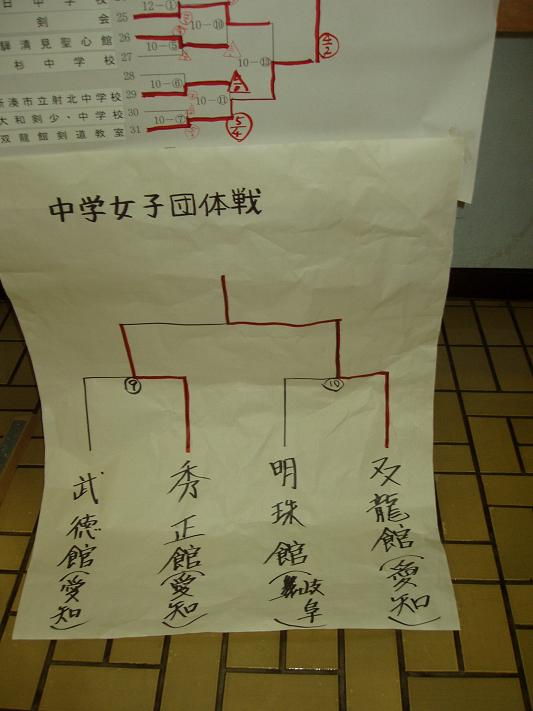 会 25
12-①
剣
10-⑩
驒清見聖心館 26
10-⑤
杉中学校 27
4/2
10-⑬
28
10-⑥
新湊市立射北中学校 29
10-⑪
大和剣少・中学校 30
10-⑦
双龍館剣道教室 31
5/4
中学女子団体戦
⑨
⑩
武徳館(愛知)
秀正館(愛知)
明珠館(岐阜)
双龍館(愛知)